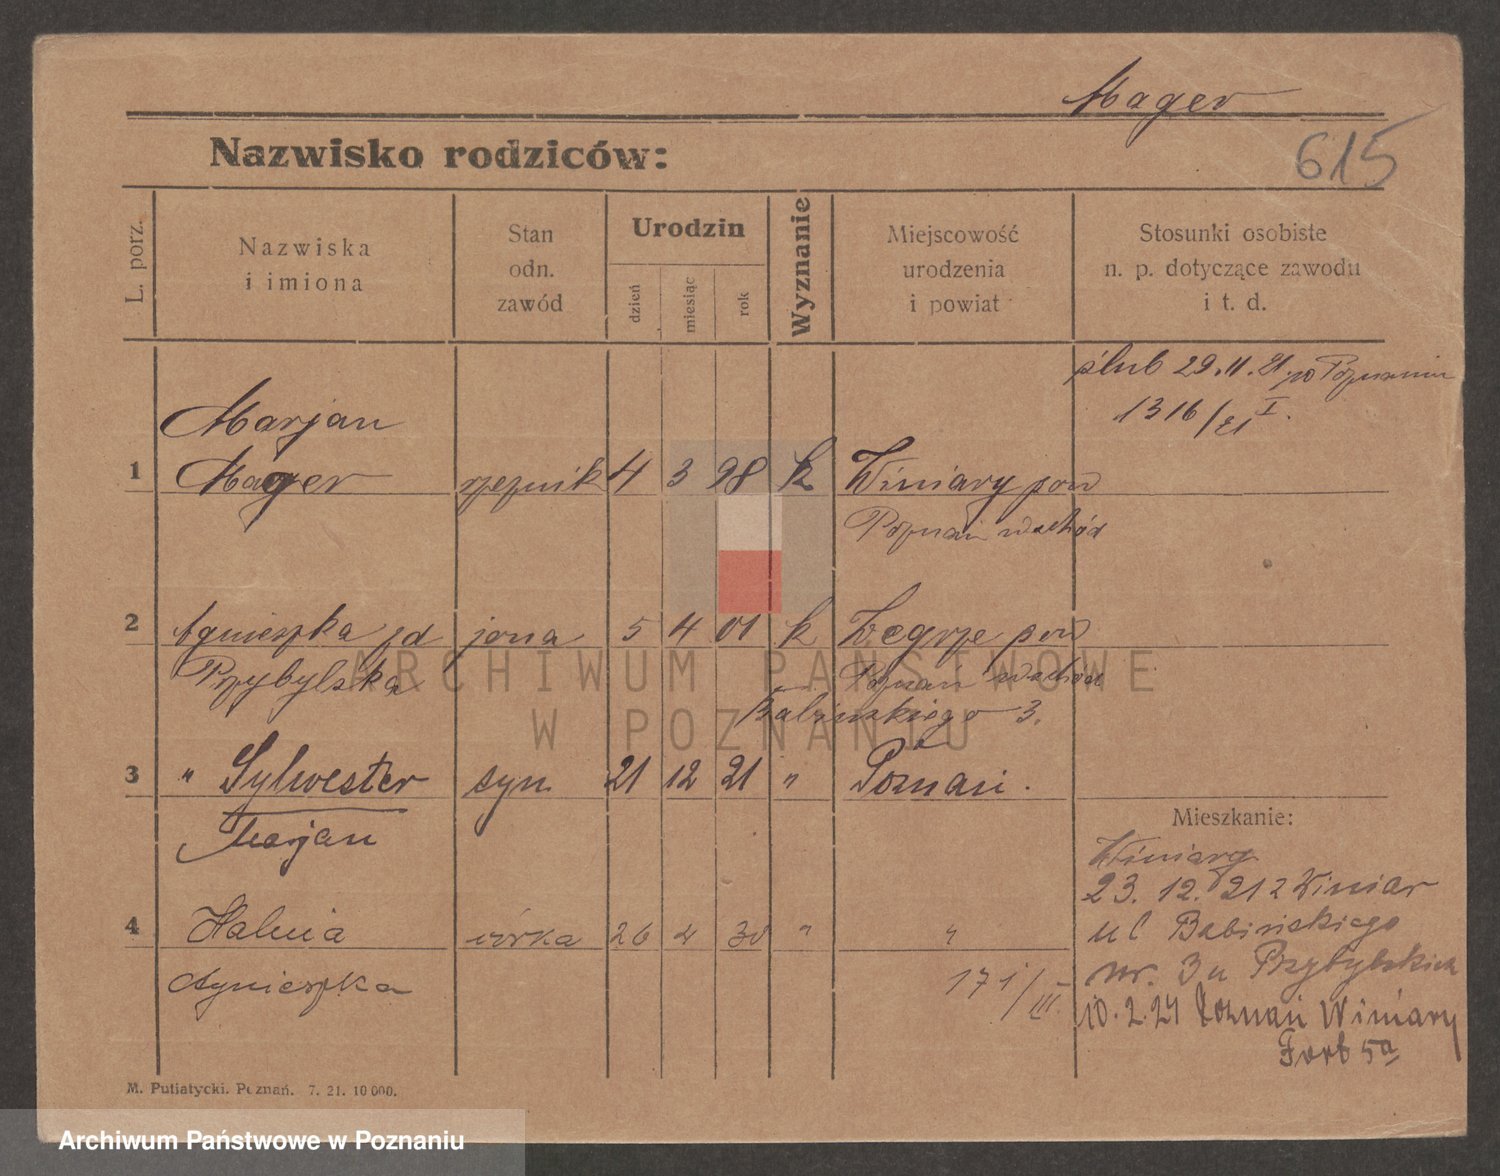 Mager
Nazwisko rodziców:
615
L. porz.
Nazwiska
i imiona
Stan
odn.
zawód
Urodzin
dzień
miesiąc
rok
Wyznanie
Miejscowość
urodzenia
i powiat
Stosunki osobiste
n. p. dotyczące zawodu
i t. d.
ślub 29.11.21 po Poznaniu
1316/21 I.
Marjan
1 Mager rzeźnik 4 3 98 k Winiary pow
Poznań wschód
2 Agnieszka zd żona 5 4 01 k Żegrze pow
Przybylska Poznań wschód
Babinskiego 3.
3 " Sylwester syn 21 12 21 " Poznań.
Marjan
Mieszkanie:
Winiary
23. 12. 21 z Winiar
4 Halina córka 26 2 30 " "
ul Babińskiego
Agnieszka
171/III.
nr. 3 u Przybylskich
10.2.24 Poznań Winiary
Fort 5a
M. Putiatycki. Poznań. 7. 21. 10 000.
ARCHIWUM PAŃSTWOWE
W POZNANIU
Archiwum Państwowe w Poznaniu